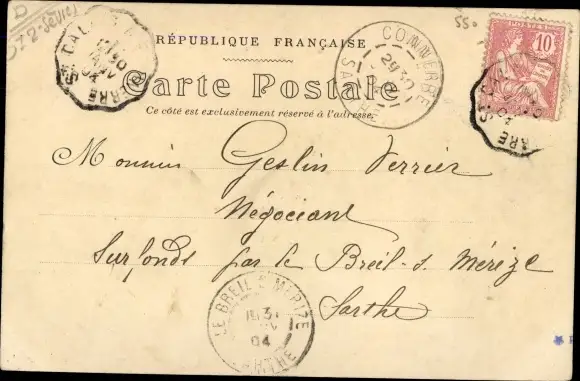 D
72-Sévié
550
RÉPUBLIQUE FRANÇAISE
Carte Postale
Ce côté est exclusivement réservé à l'adresse.
10
CONNERRE
SARTHE
Monsieur Geslin Verrier
Négociant
Surfonds par le Breil-s. Mérize
Sarthe
LE BREIL S MERIZE
04
SARTHE